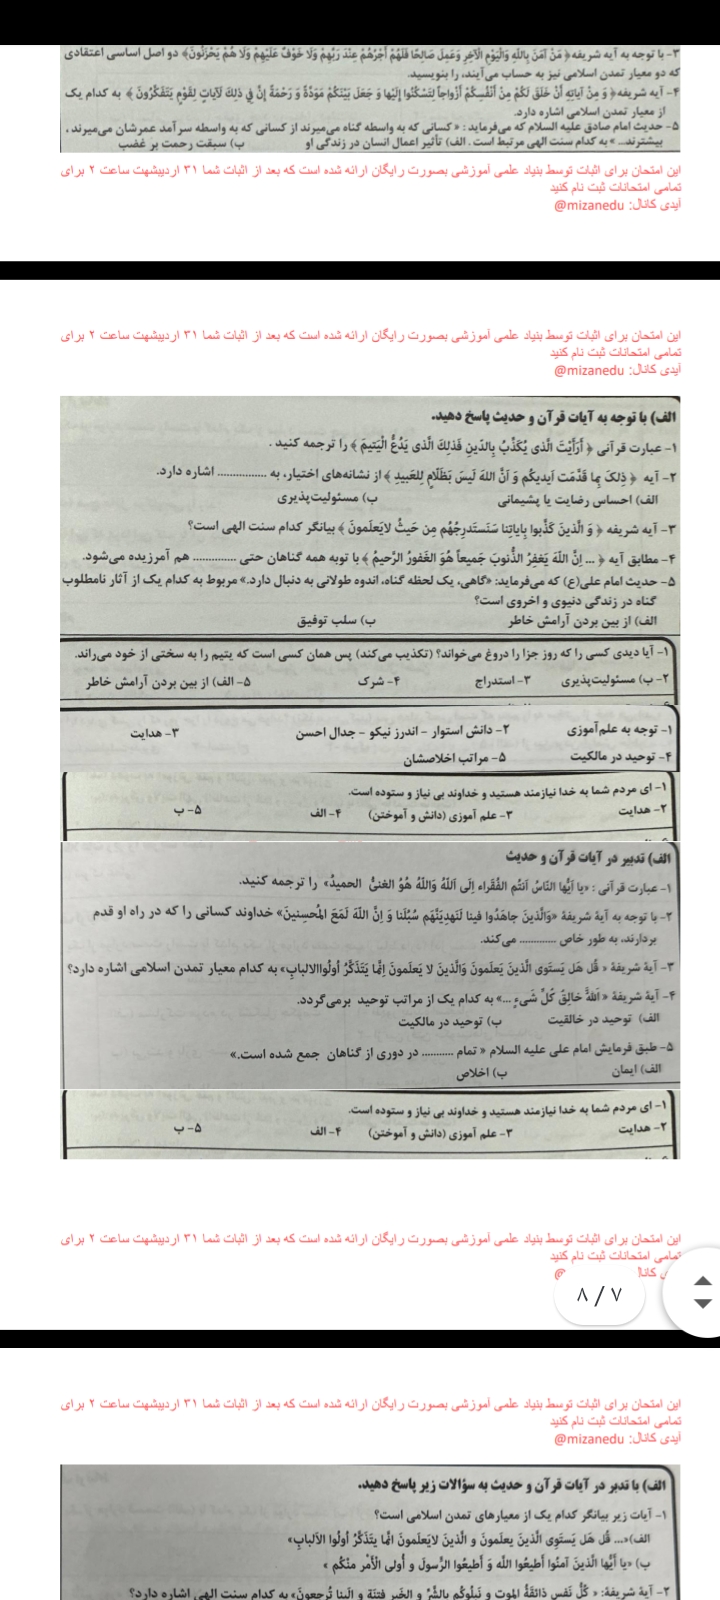 ۳- با توجه به آیه شریفه ﴿ مَنْ آمَنَ بِاللَّهِ وَالْيَوْمِ الْآخِرِ وَعَمِلَ صَالِحًا فَلَهُمْ أَجْرُهُمْ عِنْدَ رَبِّهِمْ وَلَا خَوْفٌ عَلَيْهِمْ وَلَا هُمْ يَحْزَنُونَ﴾ دو اصل اساسی اعتقادی
که دو معیار تمدن اسلامی نیز به حساب می‌آیند، را بنویسید.
۴- آیه شریفه﴿ وَ مِنْ آيَاتِهِ أَنْ خَلَقَ لَكُمْ مِنْ أَنْفُسِكُمْ أَزْوَاجاً لِتَسْكُنُوا إِلَيْهَا وَ جَعَلَ بَيْنَكُمْ مَوَدَّةً وَ رَحْمَةً إِنَّ فِي ذَلِكَ لَآيَاتٍ لِقَوْمٍ يَتَفَكَّرُونَ ﴾ به کدام یک
از معیار تمدن اسلامی اشاره دارد.
۵- حدیث امام صادق علیه السلام که می‌فرماید: « کسانی که به واسطه گناه می‌میرند از کسانی که به واسطه سرآمد عمرشان می‌میرند ،
بیشترند.. » به کدام سنت الهی مرتبط است . الف) تأثیر اعمال انسان در زندگی او ب) سبقت رحمت بر غضب
این امتحان برای اثبات توسط بنیاد علمی آموزشی بصورت رایگان ارائه شده است که بعد از اثبات شما ۳۱ اردیبهشت ساعت ۲ برای
تمامی امتحانات ثبت نام کنید
آیدی کانال: @mizanedu
این امتحان برای اثبات توسط بنیاد علمی آموزشی بصورت رایگان ارائه شده است که بعد از اثبات شما ۳۱ اردیبهشت ساعت ۲ برای
تمامی امتحانات ثبت نام کنید
آیدی کانال: @mizanedu
الف) با توجه به آیات قرآن و حدیث پاسخ دهید.
۱- عبارت قرآنی ﴿ أَرَأَيْتَ الَّذی یُکَذِّبُ بِالدّینِ فَذلِكَ الَّذی یَدُعُّ الْیَتیمَ ﴾ را ترجمه کنید .
۲- آیه ﴿ ذلِکَ بِما قَدَّمَت اَیدیکُم وَ اَنَّ اللهَ لَیسَ بِظَلّامٍ لِلعَبیدِ ﴾ از نشانه‌های اختیار، به ............... اشاره دارد.
الف) احساس رضایت یا پشیمانی ب) مسئولیت‌پذیری
۳- آیه شریفه ﴿ وَ الَّذینَ کَذَّبوا بِایاتِنا سَنَستَدرِجُهُم مِن حَیثُ لایَعلَمونَ ﴾ بیانگر کدام سنت الهی است؟
۴- مطابق آیه ﴿ ... اِنَّ اللهَ یَغفِرُ الذُّنوبَ جَمیعاً هُوَ الغَفورُ الرَّحیمُ ﴾ با توبه همه گناهان حتی ............. هم آمرزیده می‌شود.
۵- حدیث امام علی(ع) که می‌فرماید: «گاهی، یک لحظه گناه، اندوه طولانی به دنبال دارد.» مربوط به کدام یک از آثار نامطلوب
گناه در زندگی دنیوی و اخروی است؟
الف) از بین بردن آرامش خاطر ب) سلب توفیق
۱- آیا دیدی کسی را که روز جزا را دروغ می‌خواند؟ (تکذیب می‌کند) پس همان کسی است که یتیم را به سختی از خود می‌راند.
۲- ب) مسئولیت‌پذیری ۳- استدراج ۴- شرک ۵- الف) از بین بردن آرامش خاطر
۱- توجه به علم‌آموزی ۲- دانش استوار - اندرز نیکو - جدال احسن ۳- هدایت
۴- توحید در مالکیت ۵- مراتب اخلاصشان
۱- ای مردم شما به خدا نیازمند هستید و خداوند بی نیاز و ستوده است.
۲- هدایت ۳- علم آموزی (دانش و آموختن) ۴- الف ۵- ب
الف) تدبیر در آیات قرآن و حدیث
۱- عبارت قرآنی : «یا اَیُّها النّاسُ اَنتُم الفُقَراء اِلَی اَللهُ وَاللّهُ هُوَ الغنیُّ الحمیدُ» را ترجمه کنید.
۲- با توجه به آیۀ شریفۀ «وَالَّذینَ جاهَدُوا فینا لَنَهدِیَنَّهَم سُبُلَنا وَ اِنَّ اللهَ لَمَعَ الُمحسِنینَ» خداوند کسانی را که در راه او قدم
بردارند، به طور خاص ............ می‌کند.
۳- آیۀ شریفۀ « قُل هَل یَستَوِی الَّذینَ یَعلَمونَ وَالَّذینَ لا یَعلَمونَ اِنَّما یَتَذَکَّرُ اُولُواالالبابِ» به کدام معیار تمدن اسلامی اشاره دارد؟
۴- آیۀ شریفۀ « اَللهُ خالِقُ کُلِّ شَیءٍ ...» به کدام یک از مراتب توحید برمی‌گردد.
الف) توحید در خالقیت ب) توحید در مالکیت
۵- طبق فرمایش امام علی علیه السلام « تمام .......... در دوری از گناهان جمع شده است.»
الف) ایمان ب) اخلاص
۱- ای مردم شما به خدا نیازمند هستید و خداوند بی نیاز و ستوده است.
۲- هدایت ۳- علم آموزی (دانش و آموختن) ۴- الف ۵- ب
این امتحان برای اثبات توسط بنیاد علمی آموزشی بصورت رایگان ارائه شده است که بعد از اثبات شما ۳۱ اردیبهشت ساعت ۲ برای
تمامی امتحانات ثبت نام کنید
کانال: @
۸ / ۷
این امتحان برای اثبات توسط بنیاد علمی آموزشی بصورت رایگان ارائه شده است که بعد از اثبات شما ۳۱ اردیبهشت ساعت ۲ برای
تمامی امتحانات ثبت نام کنید
آیدی کانال: @mizanedu
الف) با تدبر در آیات قرآن و حدیث به سؤالات زیر پاسخ دهید.
۱- آیات زیر بیانگر کدام یک از معیارهای تمدن اسلامی است؟
الف)«... قُل هَل یَستَوِی الَّذینَ یعلَمونَ و الَّذینَ لایَعلَمونَ انَّما یتَذَکَّرُ اُولُوا الاَلبابِ»
ب) «یا أَیُّها الَّذینَ آمنوا أَطیعُوا اللّه وَ أَطیعُوا الرَّسولَ و أُولی الأَمْر مِنکُم »
۲- آیۀ شریفۀ: « کُلُّ نَفسٍ ذائقَةُ الموتِ و نَبلُوکُم بِالشَّرِّ و الخَیرِ فتنَةً و اِلَینا تُرجعونَ» به کدام سنت الهی اشاره دارد؟